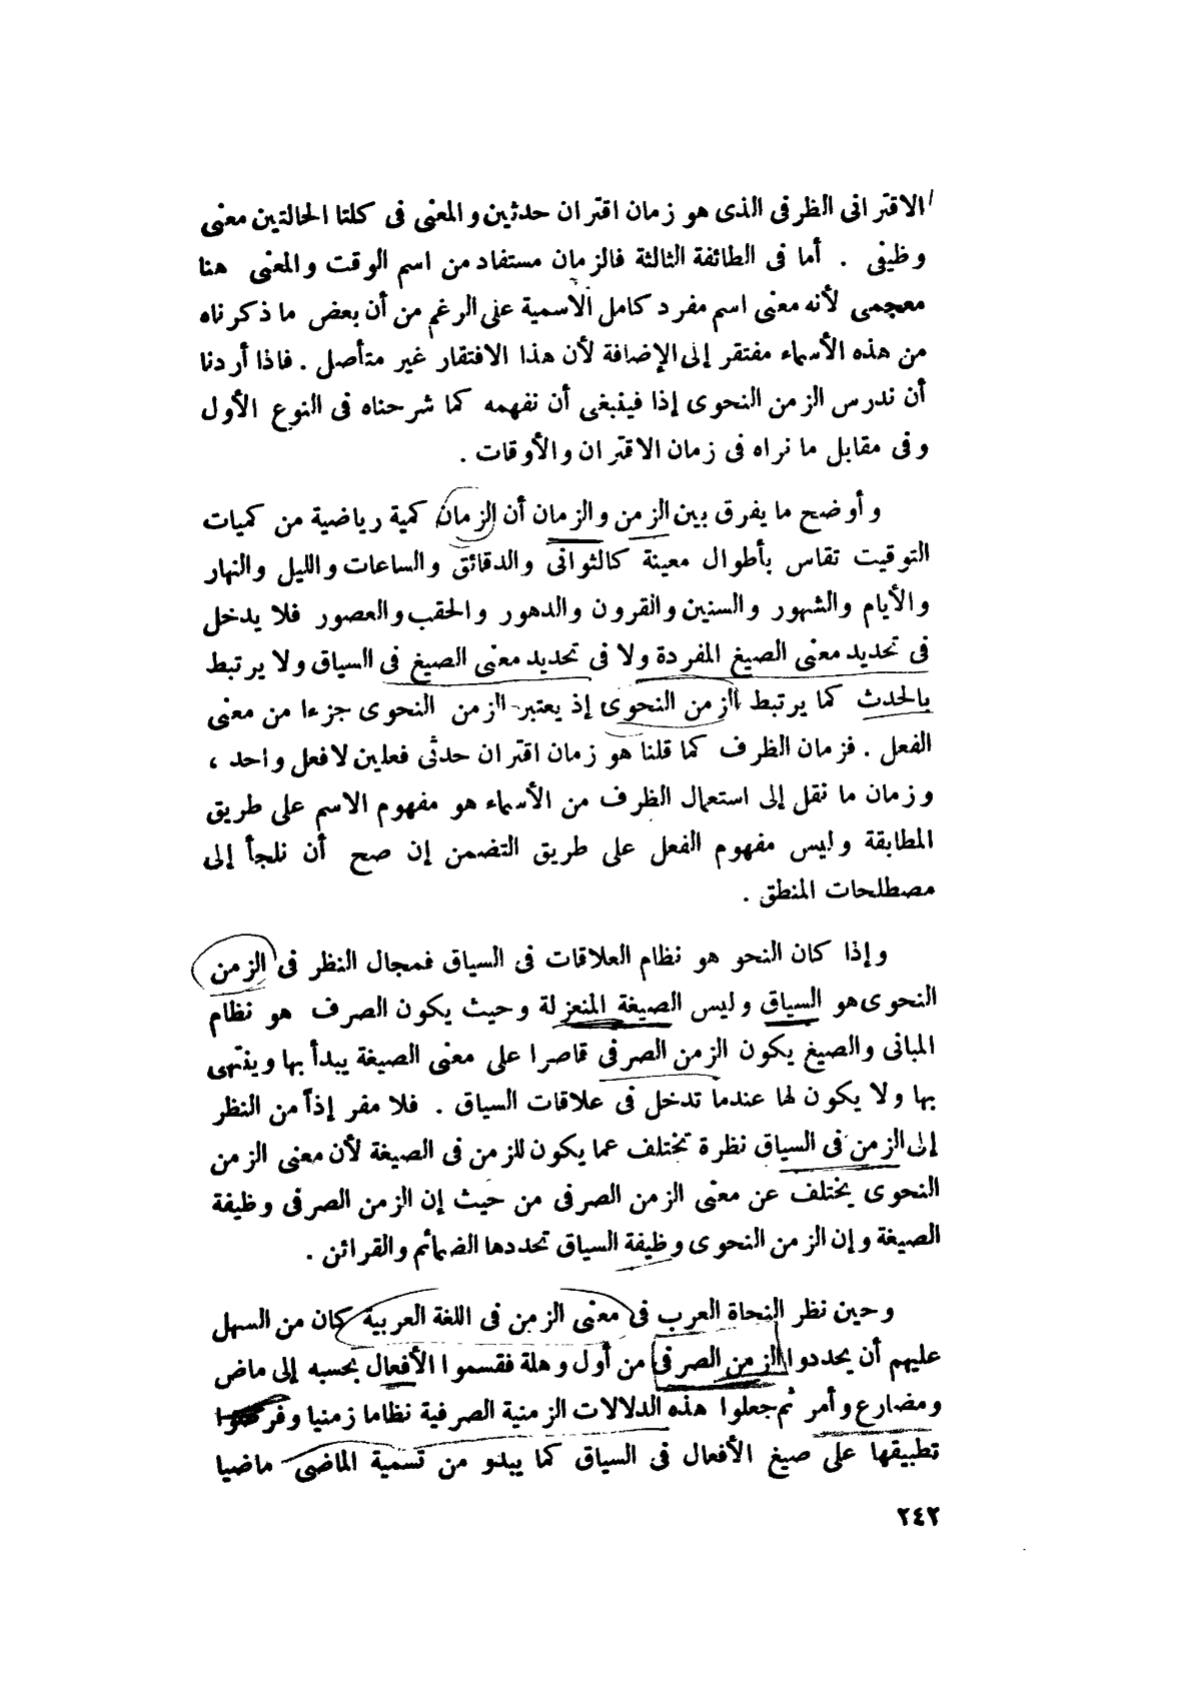 الاقترانى الظرفى الذى هو زمان اقتران حدثين والمعنى فى كلتا الحالتين معنى
وظيفى . أما فى الطائفة الثالثة فالزمان مستفاد من اسم الوقت والمعنى هنا
معجمى لأنه معنى اسم مفرد كامل الأسمية على الرغم من أن بعض ما ذكرناه
من هذه الأسماء مفتقر إلى الإضافة لأن هذا الافتقار غير متأصل . فاذا أردنا
أن ندرس الزمن النحوى إذا فينبغى أن نفهمه كما شرحناه فى النوع الأول
وفى مقابل ما نراه فى زمان الاقتران والأوقات .
وأوضح ما يفرق بين الزمن والزمان أن الزمان كمية رياضية من كميات
التوقيت تقاس بأطوال معينة كالثوانى والدقائق والساعات والليل والنهار
والأيام والشهور والسنين والقرون والدهور والحقب والعصور فلا يدخل
فى تحديد معنى الصيغ المفردة ولا فى تحديد معنى الصيغ فى السياق ولا يرتبط
بالحدث كما يرتبط الزمن النحوى إذ يعتبر الزمن النحوى جزءا من معنى
الفعل . فزمان الظرف كما قلنا هو زمان اقتران حدثى فعلين لا فعل واحد ،
وزمان ما نقل إلى استعمال الظرف من الأسماء هو مفهوم الاسم على طريق
المطابقة وليس مفهوم الفعل على طريق التضمن إن صح أن نلجأ إلى
مصطلحات المنطق .
وإذا كان النحو هو نظام العلاقات فى السياق فمجال النظر فى الزمن
النحوى هو السياق وليس الصيغة المنعزلة وحيث يكون الصرف هو نظام
المبانى والصيغ يكون الزمن الصرفى قاصرا على معنى الصيغة يبدأ بها وينتهى
بها ولا يكون لها عندما تدخل فى علاقات السياق . فلا مفر إذاً من النظر
إلى الزمن فى السياق نظرة تختلف عما يكون للزمن فى الصيغة لأن معنى الزمن
النحوى يختلف عن معنى الزمن الصرفى من حيث إن الزمن الصرفى وظيفة
الصيغة وإن الزمن النحوى وظيفة السياق تحددها الضمائم والقرائن .
وحين نظر النحاة العرب فى معنى الزمن فى اللغة العربية كان من السهل
عليهم أن يحددوا الزمن الصرفى من أول وهلة فقسموا الأفعال بحسبه إلى ماض
ومضارع وأمر ثم جعلوا هذه الدلالات الزمنية الصرفية نظاما زمنيا وفرضوا
تطبيقها على صيغ الأفعال فى السياق كما يبدو من تسمية الماضى ماضيا
٢٤٢